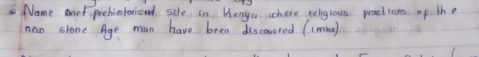 Name one prehistorical site in Kenya where religious practices of the
new stone Age man have been discovered (1mks)